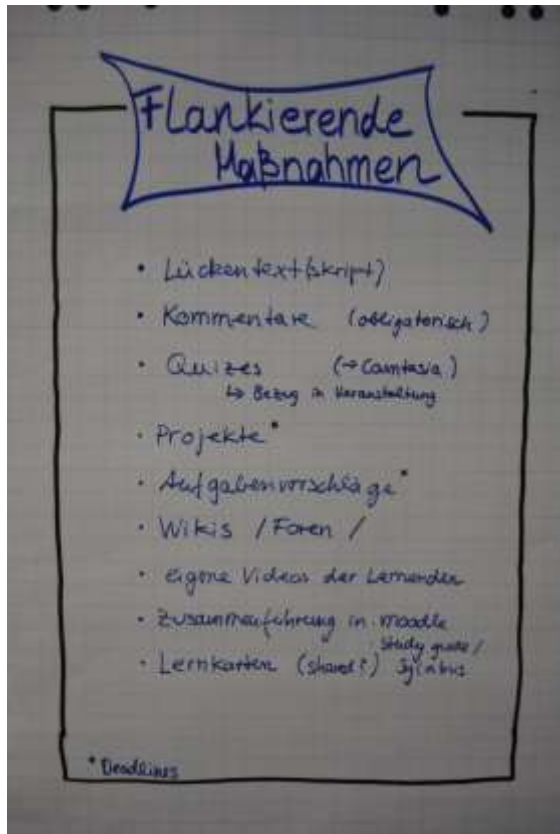 Flankierende
Maßnahmen
• Lückentext(skript)
• Kommentare (obligatorisch)
• Quizes (→ Camtasia)
↳ Bezug in Veranstaltung
• Projekte*
• Aufgabenvorschläge*
• Wikis / Foren /
• eigene Videos der Lernenden
• Zusammenführung in moodle
Study guide /
• Lernkarten (shared?) Syllabus
* Deadlines